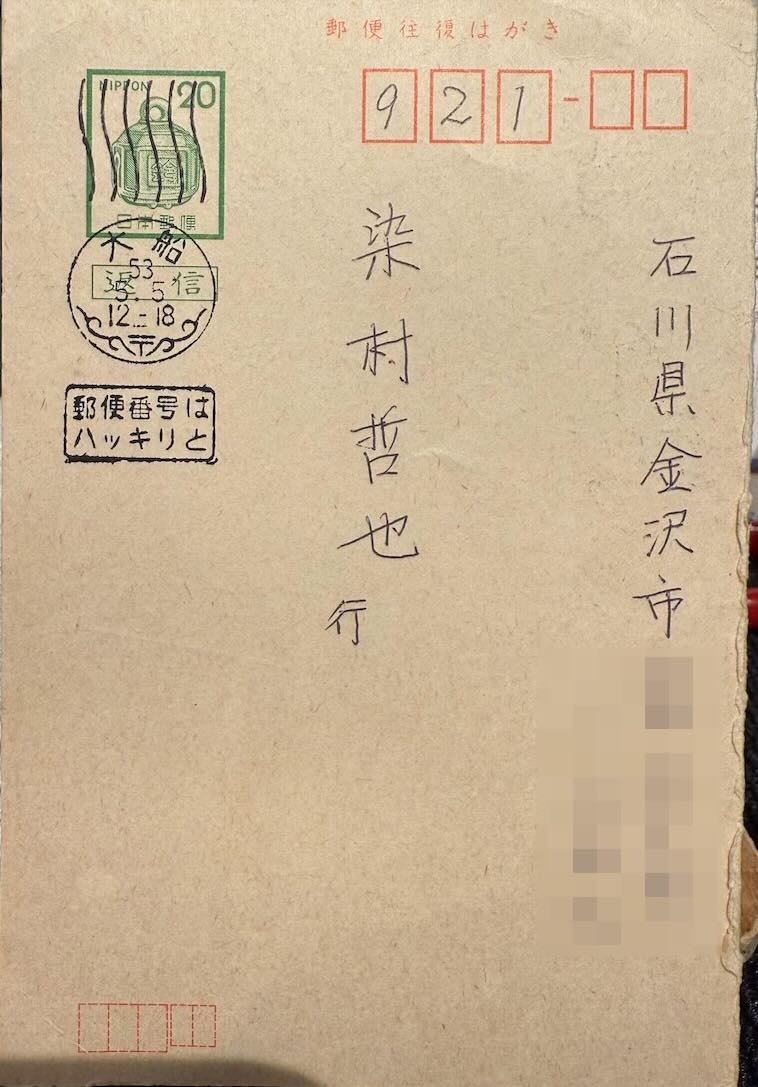 郵便往復はがき
NIPPON 20
鈴
日本郵便
921
大船
返信
53
5.5
12-18
〒
郵便番号は
ハッキリと
石川県金沢市
染村哲也行